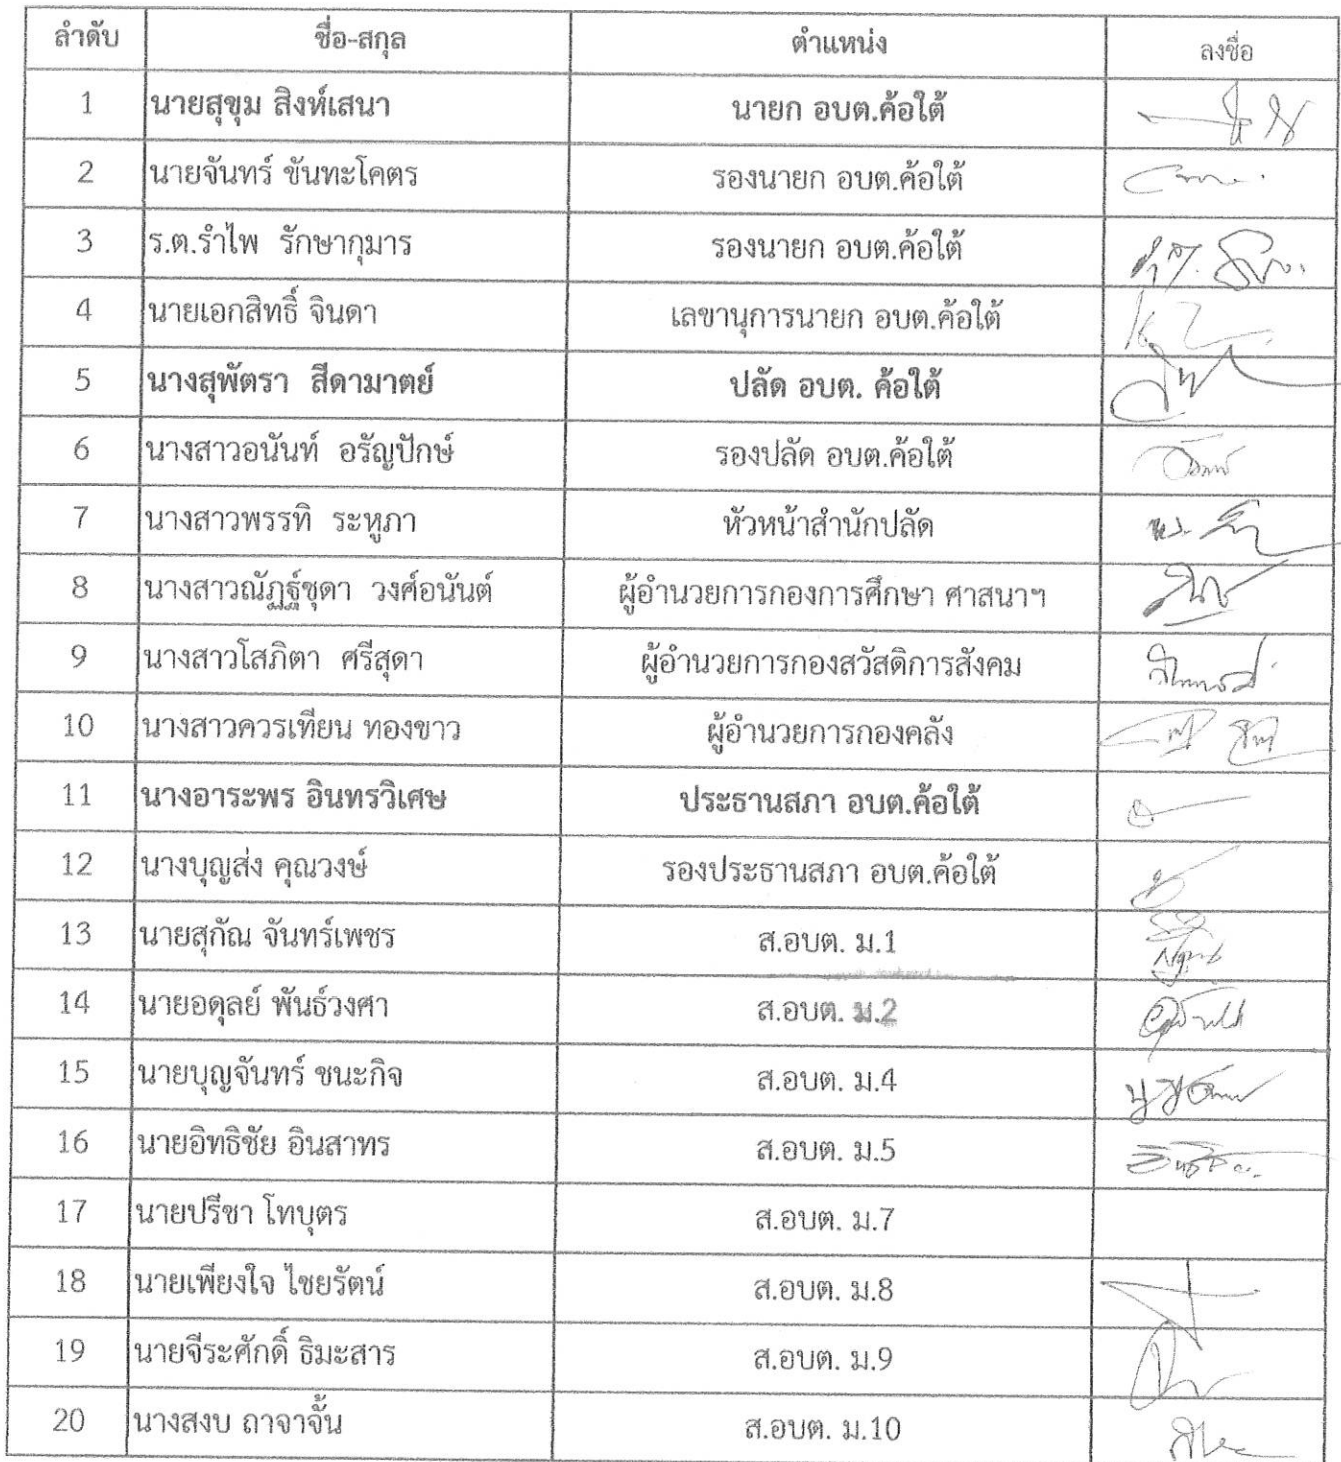 ลำดับ ชื่อ-สกุล ตำแหน่ง ลงชื่อ
1 นายสุขุม สิงห์เสนา นายก อบต.ค้อใต้
2 นายจันทร์ ขันทะโคตร รองนายก อบต.ค้อใต้
3 ร.ต.รำไพ รักษากุมาร รองนายก อบต.ค้อใต้
4 นายเอกสิทธิ์ จินดา เลขานุการนายก อบต.ค้อใต้
5 นางสุพัตรา สีดามาตย์ ปลัด อบต. ค้อใต้
6 นางสาวอนันท์ อรัญปักษ์ รองปลัด อบต.ค้อใต้
7 นางสาวพรรทิ ระหูภา หัวหน้าสำนักปลัด
8 นางสาวณัฏฐ์ชุดา วงศ์อนันต์ ผู้อำนวยการกองการศึกษา ศาสนาฯ
9 นางสาวโสภิตา ศรีสุดา ผู้อำนวยการกองสวัสดิการสังคม
10 นางสาวควรเทียน ทองขาว ผู้อำนวยการกองคลัง
11 นางอาระพร อินทรวิเศษ ประธานสภา อบต.ค้อใต้
12 นางบุญส่ง คุณวงษ์ รองประธานสภา อบต.ค้อใต้
13 นายสุกัณ จันทร์เพชร ส.อบต. ม.1
14 นายอดุลย์ พันธ์วงศา ส.อบต. ม.2
15 นายบุญจันทร์ ชนะกิจ ส.อบต. ม.4
16 นายอิทธิชัย อินสาทร ส.อบต. ม.5
17 นายปรีชา โทบุตร ส.อบต. ม.7
18 นายเพียงใจ ไชยรัตน์ ส.อบต. ม.8
19 นายจีระศักดิ์ ธิมะสาร ส.อบต. ม.9
20 นางสงบ ถาจาจั้น ส.อบต. ม.10